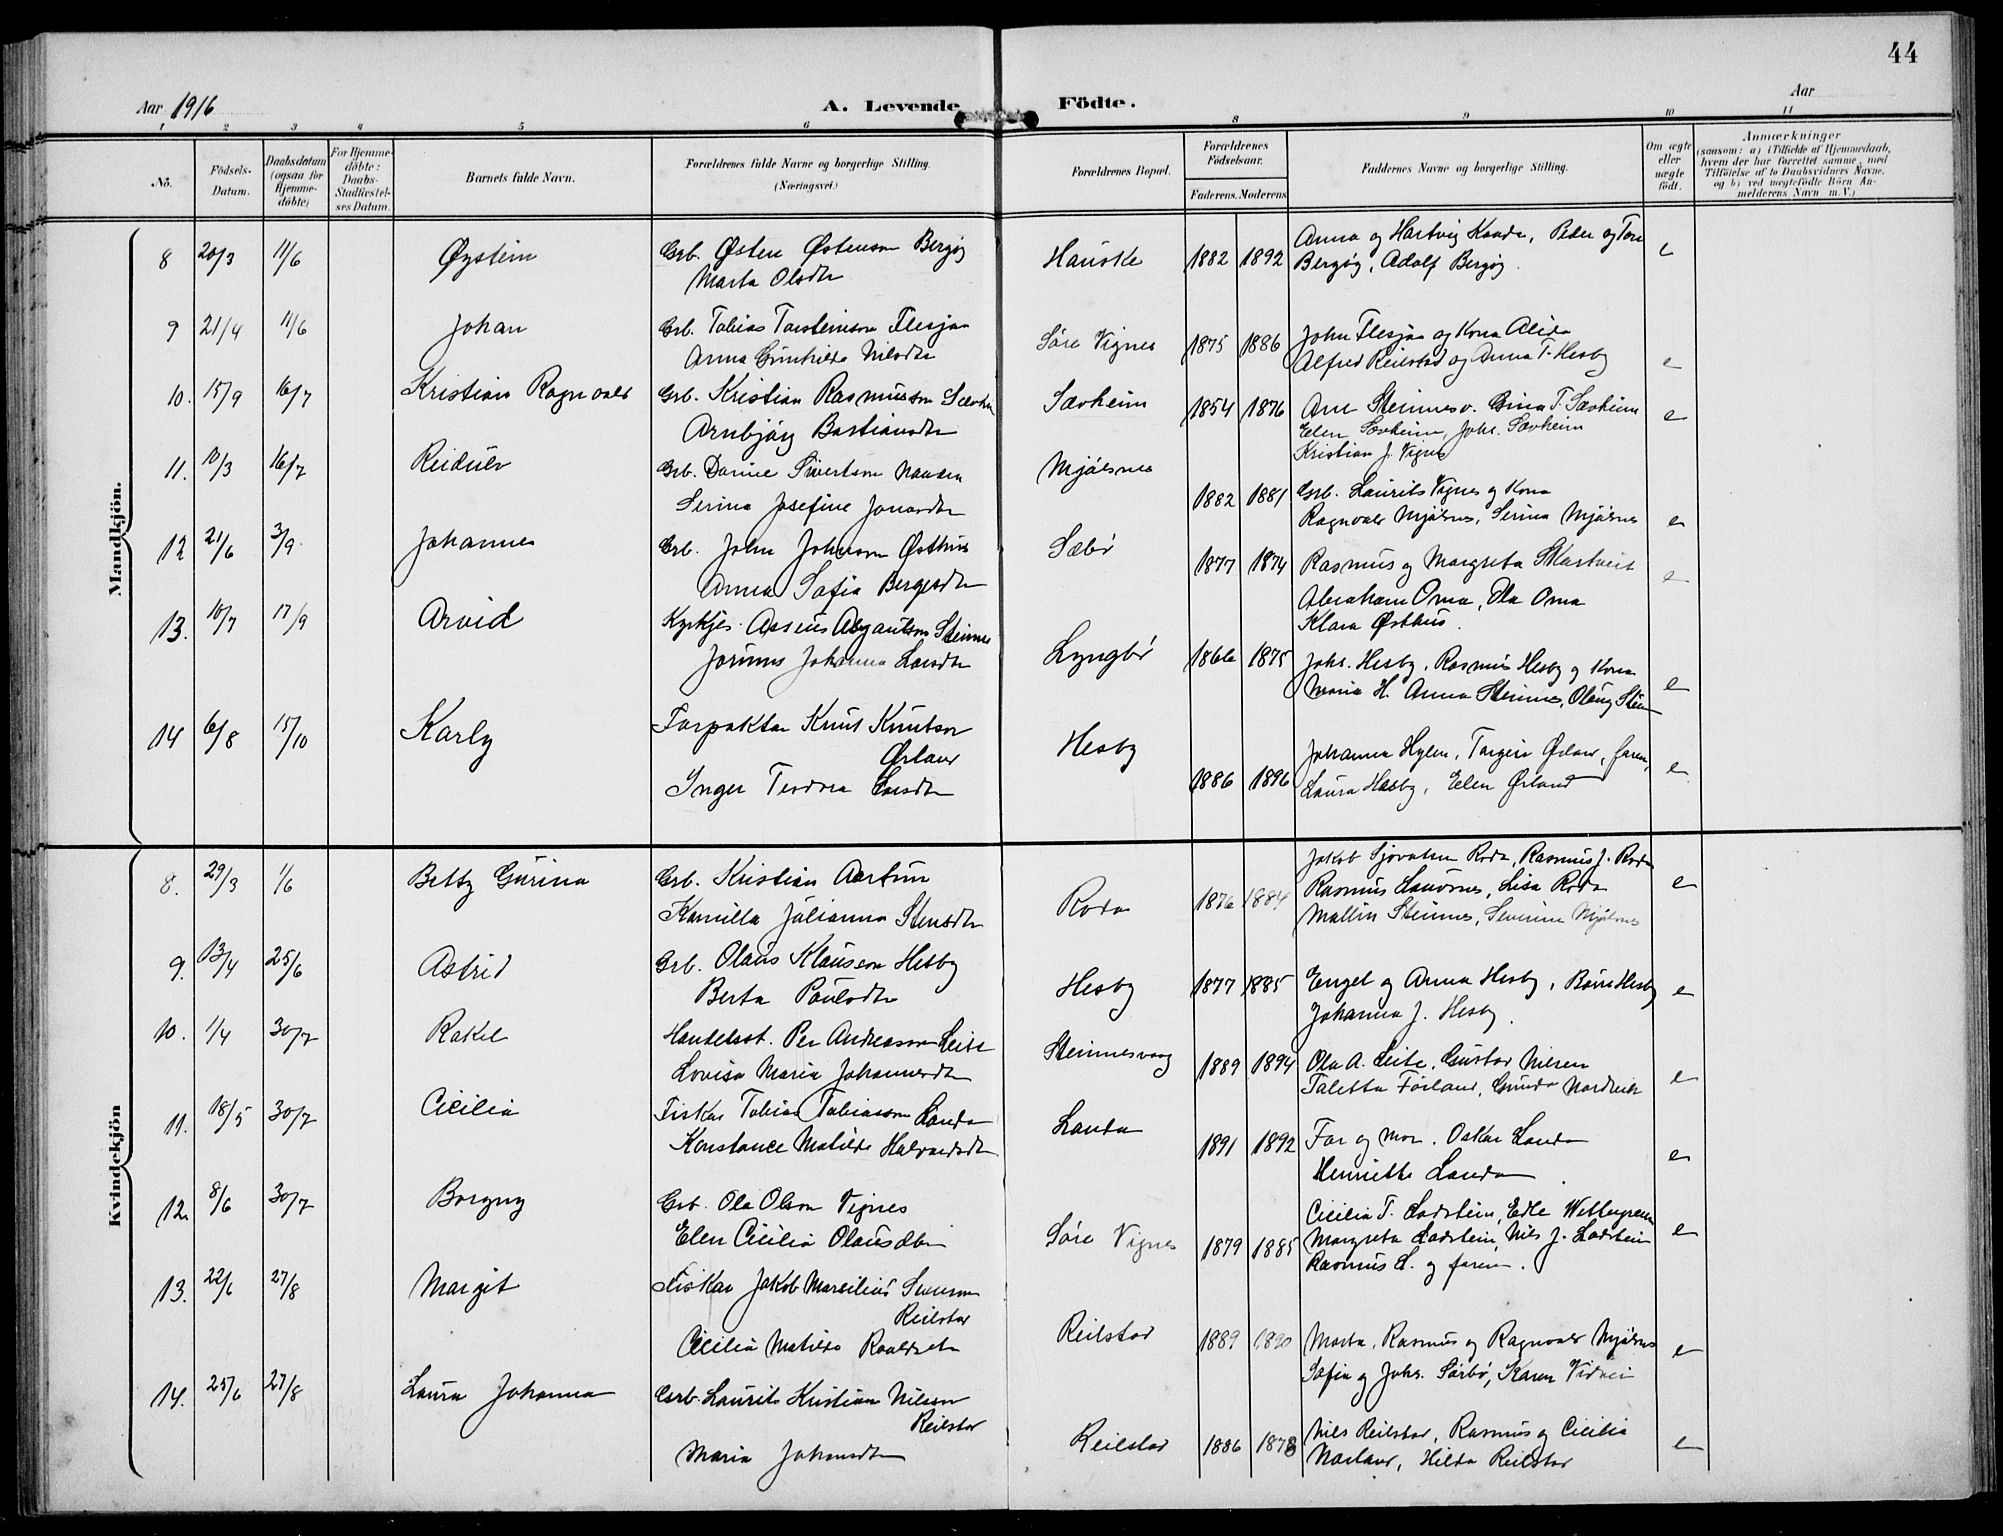 44
Aar 1916
A. Levende Födte.
Aar
1 2 3 4 5 6 8 9 10 11
No.
Födsels-Datum.
Daabsdatum (ogsaa for Hjemme-döbte)
For Hjemme-döbte: Daabs-Stadfæstel-ses Datum.
Barnets fulde Navn.
Forældrenes fulde Navne og borgerlige Stilling.
(Næringsvei.)
Forældrenes Bopæl.
Forældrenes Födselsaar.
Faderens. Moderens
Faddernes Navne og borgerlige Stilling.
Om ægte eller uægte födt.
Anmærkninger
(saasom: a) i Tilfælde af Hjemmedaab, hvem der har forrettet samme, med Tilföielse af to Daabsvidners Navne, og b) ved uægtefödte Börn An-melderens Navn m. V.)
Mandkjön.
8 20/3 11/6 Øystein Grb. Østen Østenson Bergøy
Marta Olsdtr
Hauske 1882 1892 Anna og Hartvig Kaada, Peder og Tore
Bergøy, Adolf Bergøy. e
9 21/4 11/6 Johan Grb. Tobias Torsteinson Flesjaa
Anna Gunhilda Nilsdtr
Søre Vignes 1875 1886 John Flesjaa og Kona Alida
Alfred Reilstad og Anna T. Hesby e
10. 15/9 16/7 Kristian Ragnvald Grb. Kristian Rasmusson Sævheim
Arnbjørg Bastiansdtr
Sævheim 1854 1876 Arne Steinnesv. Gina T. Sævheim
Elen Sævheim, Johs. Sævheim
Kristian J. Vignes e
11. 10/3 16/7 Reidulv Grb. Daniel Sivertson Nauden
Serina Josefine Jonasdtr
Mjølsnes 1882 1881 Grb. Laurits Vignes og Kona
Ragnvald Mjølsnes, Serina Mjølsnes e
12 21/6 3/9. Johannes Grb. John Johnson Østhus
Anna Sofia Bergesdtr
Sæbø 1877 1874 Rasmus og Margreta Skartveit
Abraham Oma, Ola Oma
Klara Østhus. e
13. 10/7 17/9 Arvid Kyrkjes. Asseus Asgautson Steinnes
Jorunns Johanna Larsdtr
Lyngbø 1866 1875 Johs. Hesby, Rasmus Hesby og Kona
Maria H. Anna Steinnes, Olaug Stein e
14 6/8 15/10 Karly Forpaktar Knut Knutson
Ørland
Inger Teodora Larsdtr
Hesby 1886 1896 Johanna Hylen, Torgeir Ørland, faren,
Laura Hesby, Elen Ørland e
Kvindekjön
8. 29/3 1/6 Betty Gurina Grb. Kristian Aartun
Kamilla Julianna Stensdtr
Roda 1876 1884 Jakob Sjovatsen Roda, Rasmus J. Roda
Rasmus Lauvsnes, Lisa Roda
Mallin Steinnes, Severine Mjølsnes e
9. 13/4 25/6 Astrid Grb. Olaus Klausson Hesby
Berta Paulsdtr
Hesby 1877 1885 Engel og Anna Hesby, Børre Hesby
Johanna J. Hesby. e
10. 1/4 30/7 Rakel Handelsst. Per Andreasson Leite
Lovisa Maria Johannesdtr
Steinnesvaag 1889 1894 Ola A. Leite, Gustav Nilsen
Taletta Førland, Gunda Nordvik e
11. 18/5 30/7 Cicilia Fiskar Tobias Tobiasson Landa
Konstance Matilde Halvardsdtr
Landa 1891 1892 Far og mor. Oskar Landa
Henriette Landa. e
12. 8/6 30/7 Borgny Grb. Ola Olson Vignes
Elen Cicilia Olausdtr
Søre Vignes 1879 1885 Cicilia T. Ladstein, Edle Wettergreen
Margreta Ladstein, Nils J. Ladstein
Rasmus L. og faren. e
13. 22/6 27/8 Margit Fiskar Jakob Marsilius Svenson
Reilstad
Cicilia Matilda Roaldsdtr
Reilstad 1889 1890 Marta, Rasmus og Ragnvald Mjølsnes
Sofia og Johs. Sørbø, Karen Vidvei e
14. 25/6 27/8 Laura Johanna Grb. Laurits Kristian Nilsson
Reilstad
Maria Johansdtr
Reilstad 1886 1878 Nils Reilstad, Rasmus og Cicilia
Nordland, Hilda Reilstad e